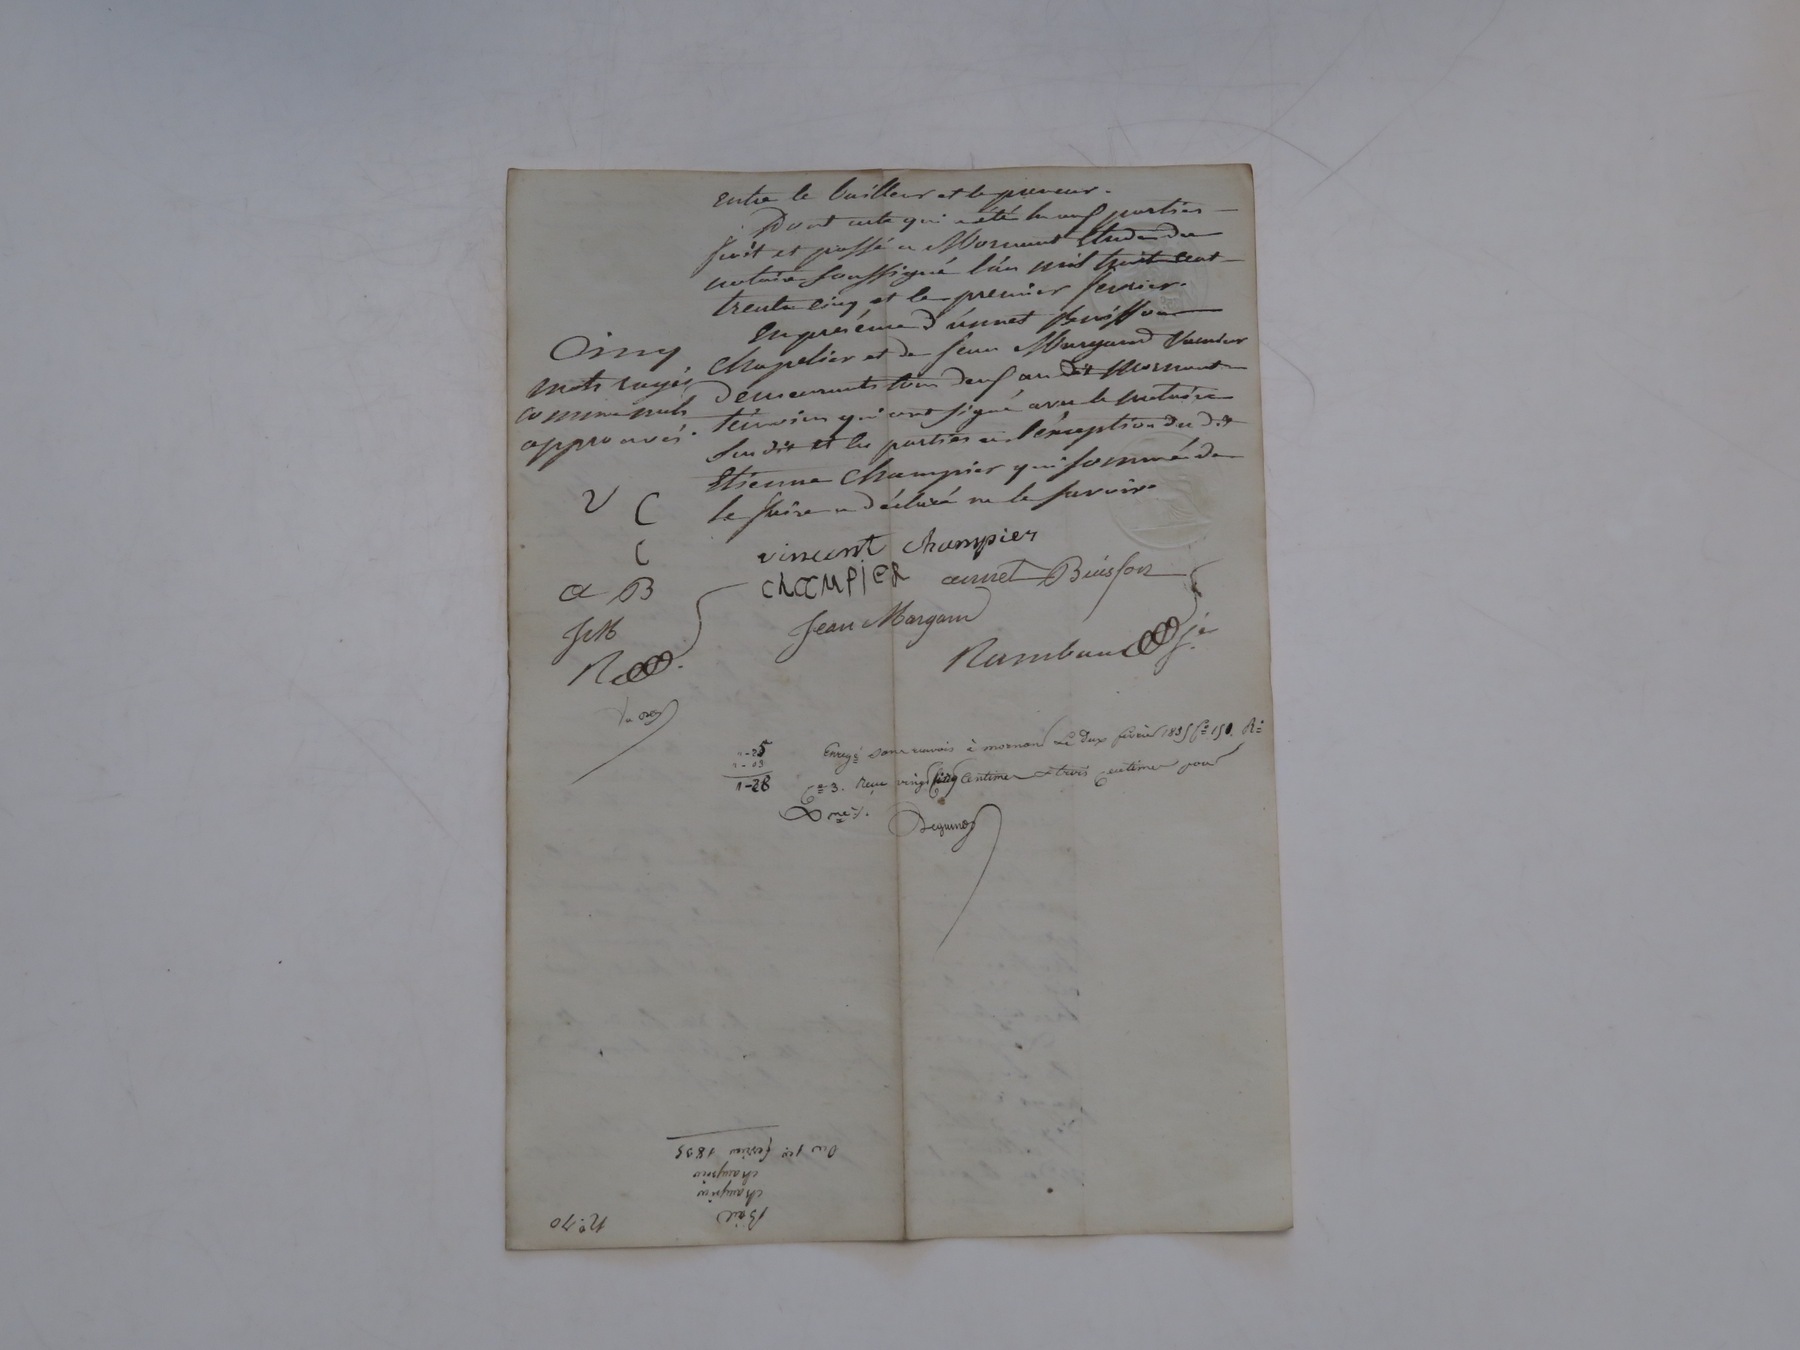 Entre le bailleur et le preneur.
Dont acte qui a été lu aux parties
fait et passé a Mornant Etude du
notaire soussigné l'an mil huit cent
trente cinq et le premier fevrier.
En présence d'annet Buisson
chapelier et de Jean Margand
demeurants tous deux au dit Mornant
témoins qui ont signé avec le notaire
susdit et les parties a l'exception du dit
Etienne Champier qui sommé de
le faire a déclaré ne le savoir.
Cinq
mots rayés
comme nuls
approuvés.
V C
C
a B
JM
R
vincent champier
ChAMPIER annet Buisson
Jean Margand
Rambaud Jne
1-25
1-03
1-28
Enregé sans renvois à mornant Le deux fevrier 1835 fo 150. Ro
Ce 3. Reçu vingt cinq Centimes et trois Centimes pour
Dme.
No. 70
Bail
champier
champier
Du 1er fevrier 1835